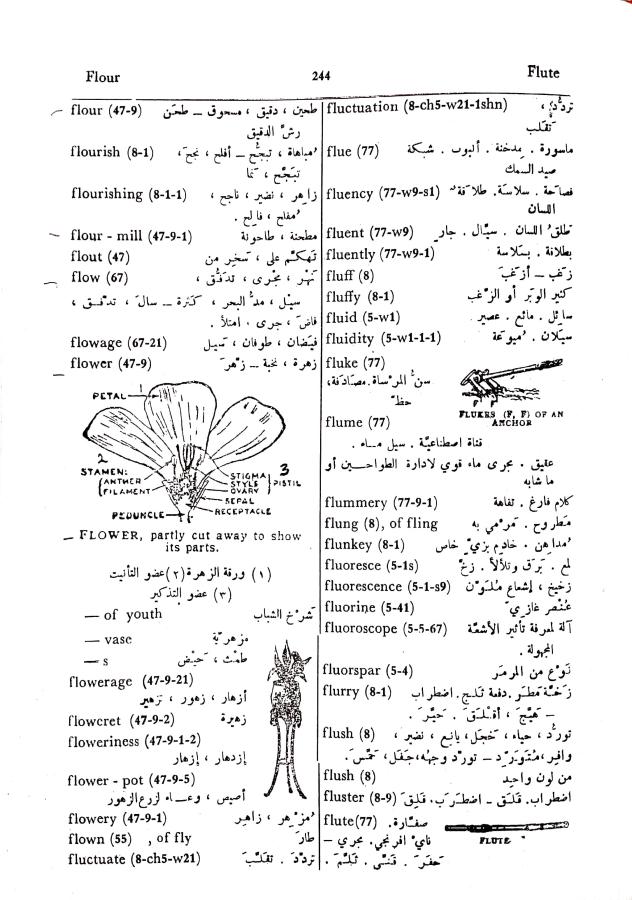 Flour 244 Flute
flour (47-9) طحين ، دقيق ، مسحوق – طحَن
رشّ الدقيق
flourish (8-1) مُباهاة ، تبجُّح – أفلح ، نجحَ ،
تبَجَّح ، نما
flourishing (8-1-1) زاهِر ، نضير ، ناجح ،
مُفلح ، فالح .
flour - mill (47-9-1) مطحنة ، طاحونة
flout (47) تَهكّم على ، سَخِر من
flow (67) نَهْر ، مجْرى ، تدَفُّق ،
سيْل ، مدُّ البحر ، كَثرة – سالَ ، تدفَّق ،
فاضَ ، جرى ، امتلأ .
flowage (67-21) فيَضان ، طوفان ، سَيل
flower (47-9) زهرة ، نخبة – زهَرَ
PETAL 1
2
STAMEN:
ANTHER
FILAMENT
STIGMA
STYLE
OVARY
3
PISTIL
SEPAL
RECEPTACLE
PEDUNCLE
FLOWER, partly cut away to show
its parts.
(١) ورقة الزهرة (٢) عضو التأنيث
(٣) عضو التذكير
— of youth شَرْخ الشباب
— vase مزهريّة
— s طمْث ، حَيْض
flowerage (47-9-21)
أزهار ، زهور ، تزهير
flowcret (47-9-2) زهيرة
floweriness (47-9-1-2)
إزدهار ، إزهار
flower - pot (47-9-5)
أصيص ، وعاء لزرع الزهور
flowery (47-9-1) مُزهِر ، زاهِر
flown (55) , of fly طارَ
fluctuate (8-ch5-w21) تردّدَ . تقلّبَ
fluctuation (8-ch5-w21-1shn) تردُّد ،
تَقلُّب
flue (77) ماسورة . مِدخنة . أنبوب . شبكة
صيد السمك
fluency (77-w9-s1) فصاحة . سلاسة . طلاقة
اللسان
fluent (77-w9) طلقُ اللسان . سيّال . جارٍ
fluently (77-w9-1) بطلاقة . بسلاسة
fluff (8) زغَب – أزغَبَ
fluffy (8-1) كثير الوَبَر أو الزغَب
fluid (5-w1) سائل . مائع . عصير
fluidity (5-w1-1-1) سيَلان . مُيوعَة
fluke (77)
سنُّ المرْساة . مصَادَفة ،
حظّ
FLUKES (F, F) OF AN
ANCHOR
flume (77)
قناة اصطناعيّة . سيل ماء .
عقيق . مجرى ماء قوي لادارة الطواحين أو
ما شابه
flummery (77-9-1) كلام فارغ . تفاهة
flung (8), of fling مَطروح . مَرْمي به
flunkey (8-1) مُداهن . خادم بزيّ خاص
fluoresce (5-1s) لمع . برَق وتلألأ . زخّ
fluorescence (5-1-s9) زخيخ ، إشعاع مُلَوّن
fluorine (5-41) عُنْصر غازيّ
fluoroscope (5-5-67) آلة لمعرفة تأثير الأشعّة
المجهولة .
fluorspar (5-4) نَوْع من المرمَر
flurry (8-1) زخّة مَطَر . دفعة ثلج . اضطراب
– هَيّج ، أقلَقَ . حيّرَ .
flush (8) تورّد ، حياء ، خجَل ، يانع ، نضير ،
وافر ، مُتَورّد – تورّد وجهُه ، جَفَل ، حمّسَ .
flush (8) من لون واحد
fluster (8-9) اضطراب . قلَق – اضطرَب . قلِقَ
flute(77) صفّارة .
نايٌ افرنجي . مجرى –
حفَرَ . قنّى . ثلّم .
FLUTE